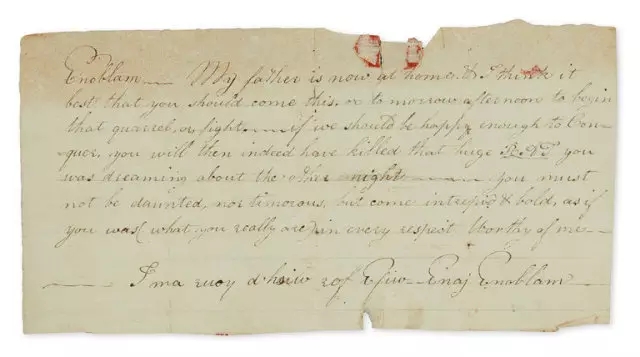 Enoblam — My father is now at home. & I think it
best that you should come this, or to morrow afternoon to begin
that quarrel, or fight — if we should be happy enough to Con-
quer, you will then indeed have killed that huge RAT you
was dreaming about the other night — you must
not be daunted, nor timorous, but come intrepid & bold, as if
you was (what you really are) in every respect Worthy of me —
— I ma ruoy d'hsiw rof Efiw — Enaj Enoblam